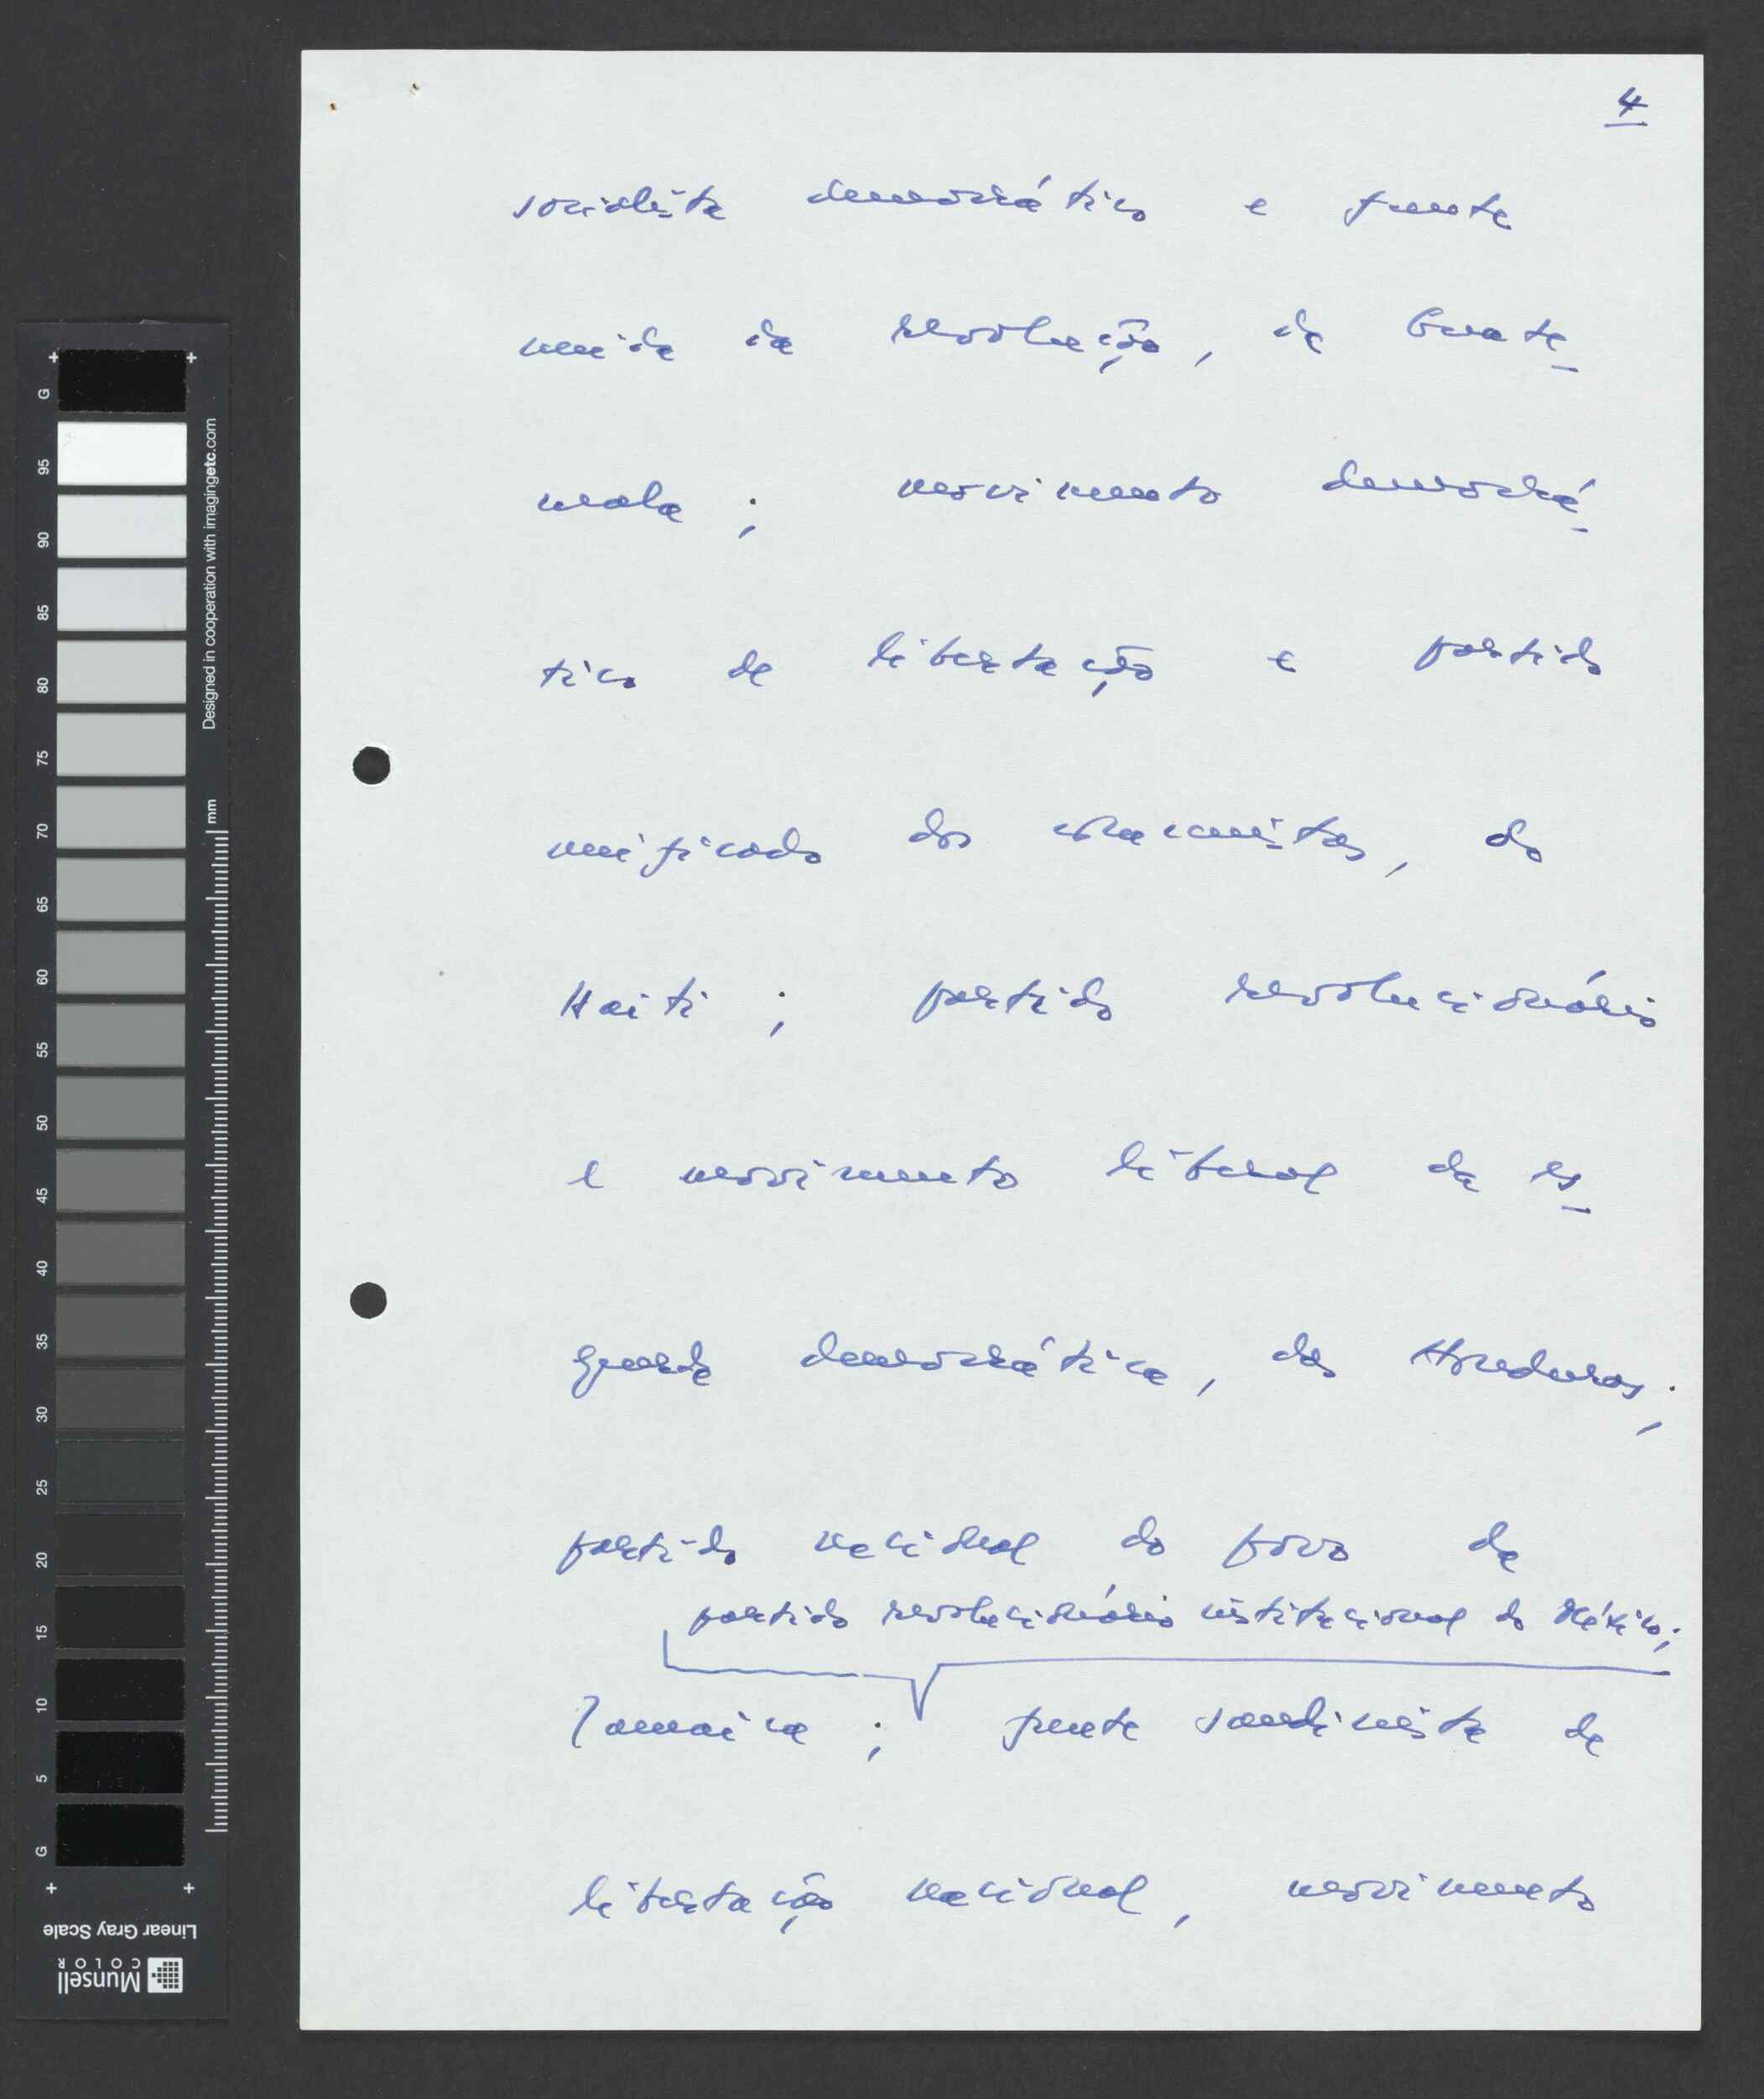 4
socialista democrático e frente
unida da revolução, da Guate-
mala ; movimento democrá-
tico de libertação e partido
unificado dos comunistas, do
Haiti ; partido revolucionário
e movimento liberal da es-
querda democrática, das Honduras ;
partido nacional do povo da
partido revolucionário institucional do México ;
Jamaica ; frente sandinista de
libertação nacional, movimento
G 95 90 85 80 75 70 65 60 55 50 45 40 35 30 25 20 15 10 5 G
Designed in cooperation with imagingetc.com
mm
Linear Gray Scale
Munsell
COLOR